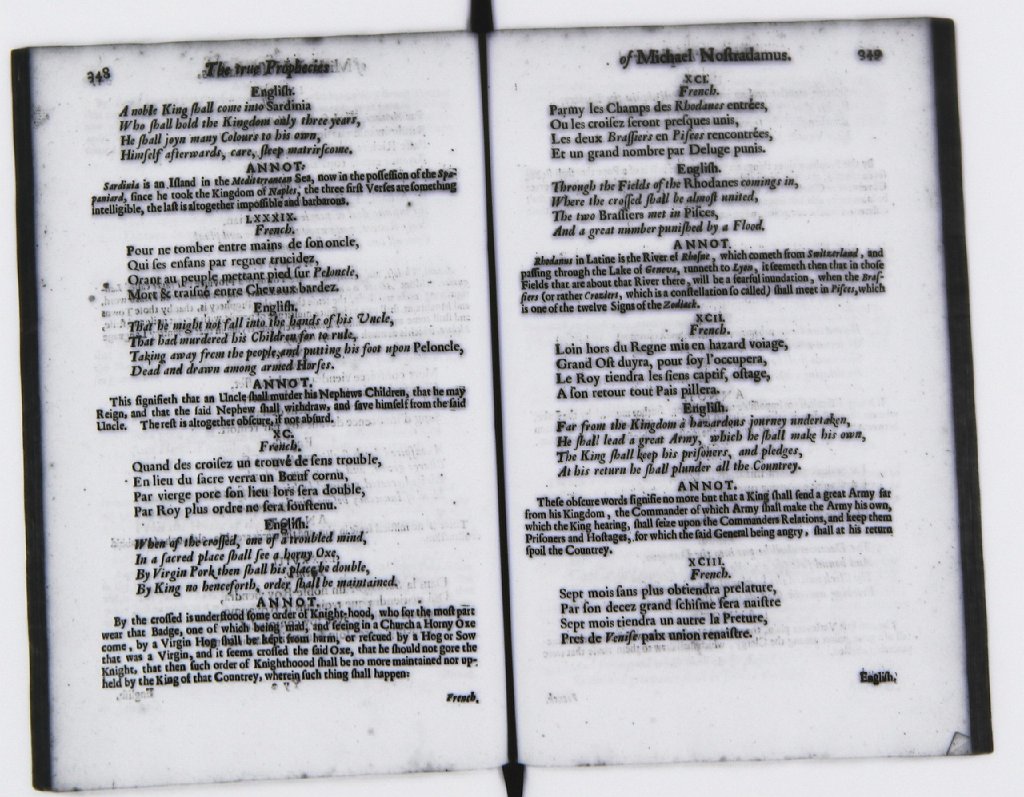 348
The true Prophecies
English.
A noble King ſhall come into Sardinia
Who ſhall hold the Kingdom only three years,
He ſhall joyn many Colours to his own,
Himſelf afterwards, care, ſleep matrirſcome.
ANNOT.
Sardinia is an Iſland in the Mediterranean Sea, now in the poſſeſſion of the Spa-
paniard, ſince he took the Kingdom of Naples, the three firſt Verſes are ſomething
intelligible, the laſt is altogether impoſſible and barbarous.
LXXXIX.
French.
Pour ne tomber entre mains de ſon oncle,
Qui ſes enfans par regner trucidez,
Orant au peuple mettant pied ſur Peloncle,
Mort & traiſné entre Chevaux bardez.
English.
That he might not fall into the hands of his Uncle,
That had murdered his Children for to rule,
Taking away from the people, and putting his foot upon Peloncle,
Dead and drawn among armed Horſes.
ANNOT.
This ſignifieth that an Uncle ſhall murder his Nephews Children, that he may
Reign, and that the ſaid Nephew ſhall withdraw, and ſave himſelf from the ſaid
Uncle. The reſt is altogether obſcure, if not abſurd.
XC.
French.
Quand des croiſez un trouvé de ſens trouble,
En lieu du ſacre verra un Bœuf cornu,
Par vierge porc ſon lieu lors ſera double,
Par Roy plus ordre ne ſera ſouſtenu.
English.
When of the croſſed, one of a troubled mind,
In a ſacred place ſhall ſee a horny Oxe,
By Virgin Pork then ſhall his place be double,
By King no henceforth, order ſhall be maintained.
ANNOT.
By the croſſed is underſtood ſome order of Knight-hood, who for the moſt part
wear that Badge, one of which being mad, and ſeeing in a Church a Horny Oxe
come, by a Virgin Hog ſhall be kept from harm, or reſcued by a Hog or Sow
that was a Virgin, and it ſeems croſſed the ſaid Oxe, that he ſhould not gore the
Knight, that then ſuch order of Knighthoood ſhall be no more maintained nor up-
held by the King of that Countrey, wherein ſuch thing ſhall happen.
French.
of Michael Noſtradamus.
349
XCI.
French.
Parmy les Champs des Rhodanes entrées,
Ou les croiſez ſeront preſques unis,
Les deux Braſſiers en Piſces rencontrées,
Et un grand nombre par Deluge punis.
English.
Through the Fields of the Rhodanes comings in,
Where the croſſed ſhall be almoſt united,
The two Braſſiers met in Piſces,
And a great number puniſhed by a Flood.
ANNOT.
Rhodanus in Latine is the River of Rhoſne, which cometh from Switzerland, and
paſſing through the Lake of Geneva, runneth to Lyon, it ſeemeth then that in thoſe
Fields that are about that River there, will be a fearful inundation, when the Braſ-
ſiers (or rather Croziers, which is a conſtellation ſo called) ſhall meet in Piſces, which
is one of the twelve Signs of the Zodiack.
XCII.
French.
Loin hors du Regne mis en hazard voiage,
Grand Oſt duyra, pour ſoy l'occupera,
Le Roy tiendra les ſiens captif, oſtage,
A ſon retour tout Pais pillera.
English.
Far from the Kingdom a hazardous journey undertaken,
He ſhall lead a great Army, which he ſhall make his own,
The King ſhall keep his priſoners, and pledges,
At his return he ſhall plunder all the Countrey.
ANNOT.
Theſe obſcure words ſignifie no more but that a King ſhall ſend a great Army far
from his Kingdom, the Commander of which Army ſhall make the Army his own,
which the King hearing, ſhall ſeize upon the Commanders Relations, and keep them
Priſoners and Hoſtages, for which the ſaid General being angry, ſhall at his return
ſpoil the Countrey.
XCIII.
French.
Sept mois ſans plus obtiendra prelature,
Par ſon decez grand ſchiſme ſera naiſtre
Sept mois tiendra un autre la Preture,
Pres de Veniſe paix union renaiſtre.
English.